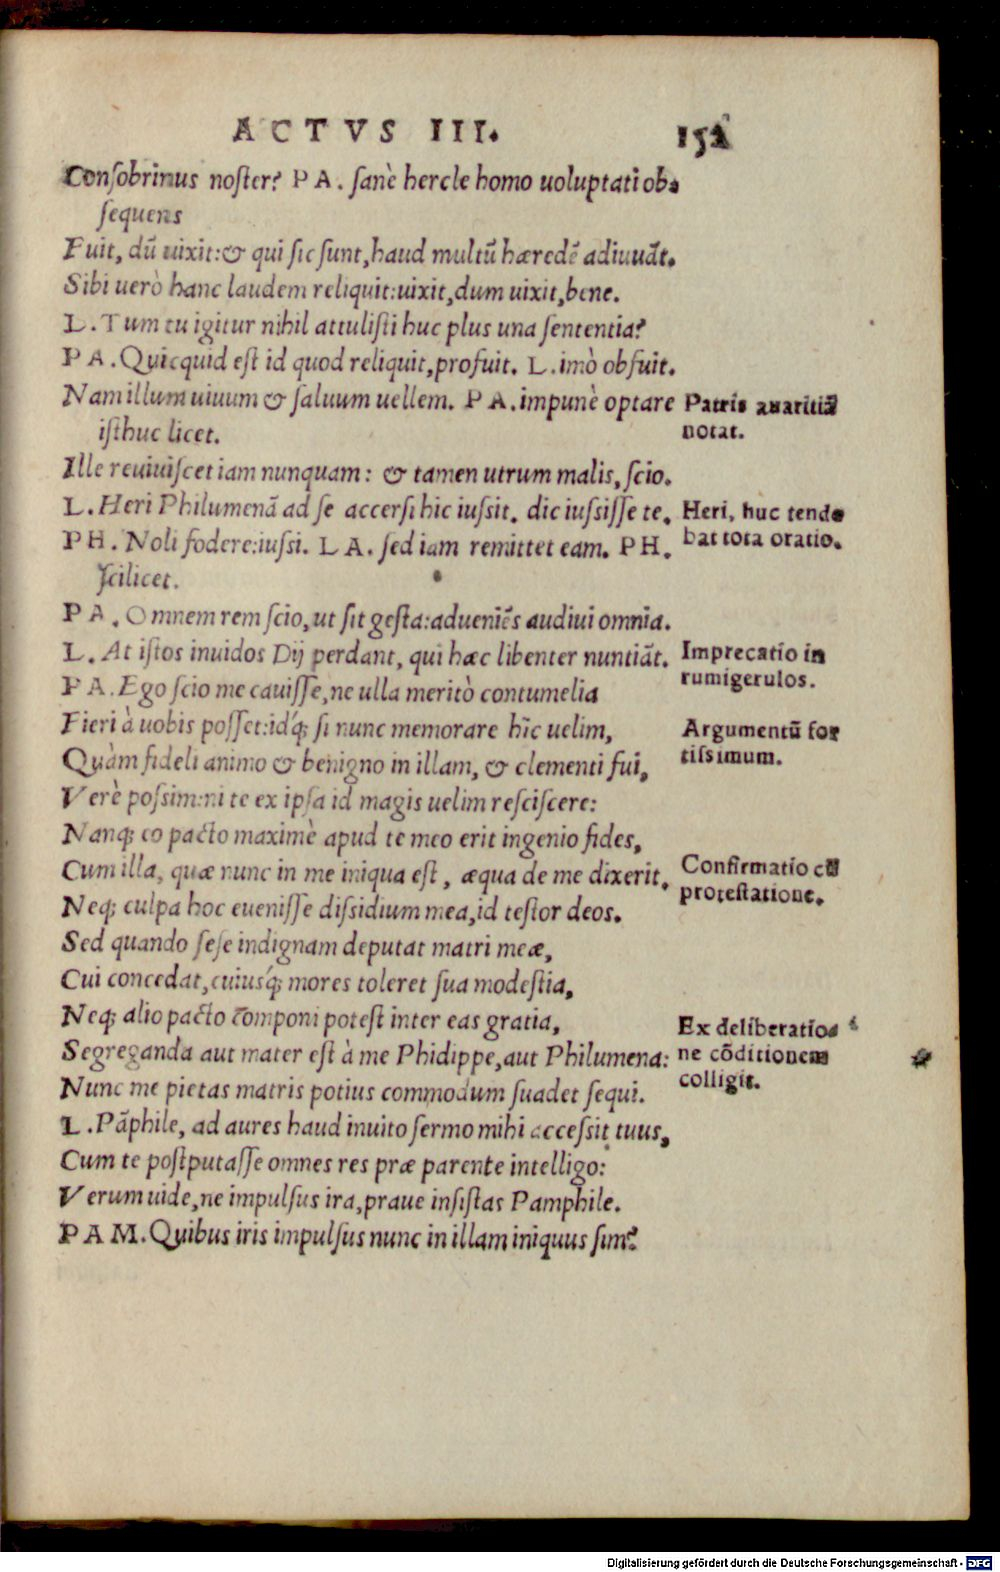 ACTVS III. 152
Conſobrinus noſter? PA. ſanè hercle homo uoluptati ob-
ſequens
Fuit, dũ uixit:& qui ſic ſunt, haud multũ hæredẽ adiuuãt.
Sibi uerò hanc laudem reliquit:uixit, dum uixit, bene.
L. Tum tu igitur nihil attuliſti huc plus una ſententia?
PA. Quicquid eſt id quod reliquit, profuit. L. imò obfuit.
Nam illum uiuum & ſaluum uellem. PA. impunè optare
iſthuc licet.
Patris auaritiã
notat.
Ille reuiuiſcet iam nunquam: & tamen utrum malis, ſcio.
L. Heri Philumenã ad ſe accerſi hic iuſsit. dic iuſsiſſe te.
PH. Noli fodere:iuſsi. LA. ſed iam remittet eam. PH.
ſcilicet.
Heri, huc tende
bat tota oratio.
PA. Omnem rem ſcio, ut ſit geſta:adueniẽs audiui omnia.
L. At iſtos inuidos Dij perdant, qui hæc libenter nuntiãt.
Imprecatio in
rumigerulos.
PA. Ego ſcio me cauiſſe, ne ulla meritò contumelia
Fieri à uobis poſſet:idq́; ſi nunc memorare hîc uelim,
Argumentũ for
tiſsimum.
Quàm fideli animo & benigno in illam, & clementi fui,
Verè poſsim:ni te ex ipſa id magis uelim reſciſcere:
Nanq; eo pacto maximè apud te meo erit ingenio fides,
Cum illa, quæ nunc in me iniqua eſt, æqua de me dixerit.
Confirmatio cũ
proteſtatione.
Neq; culpa hoc eueniſſe diſsidium mea, id teſtor deos.
Sed quando ſeſe indignam deputat matri meæ,
Cui concedat, cuiusq́; mores toleret ſua modeſtia,
Neq; alio pacto cõmponi poteſt inter eas gratia,
Segreganda aut mater eſt à me Phidippe, aut Philumena:
Nunc me pietas matris potius commodum ſuadet ſequi.
Ex deliberatio-
ne cõditionem
colligit.
L. Pãphile, ad aures haud inuito ſermo mihi acceſsit tuus,
Cum te poſtputaſſe omnes res præ parente intelligo:
Verum uide, ne impulſus ira, praue inſiſtas Pamphile.
PAM. Quibus iris impulſus nunc in illam iniquus ſim?
Digitalisierung gefördert durch die Deutsche Forschungsgemeinschaft - DFG